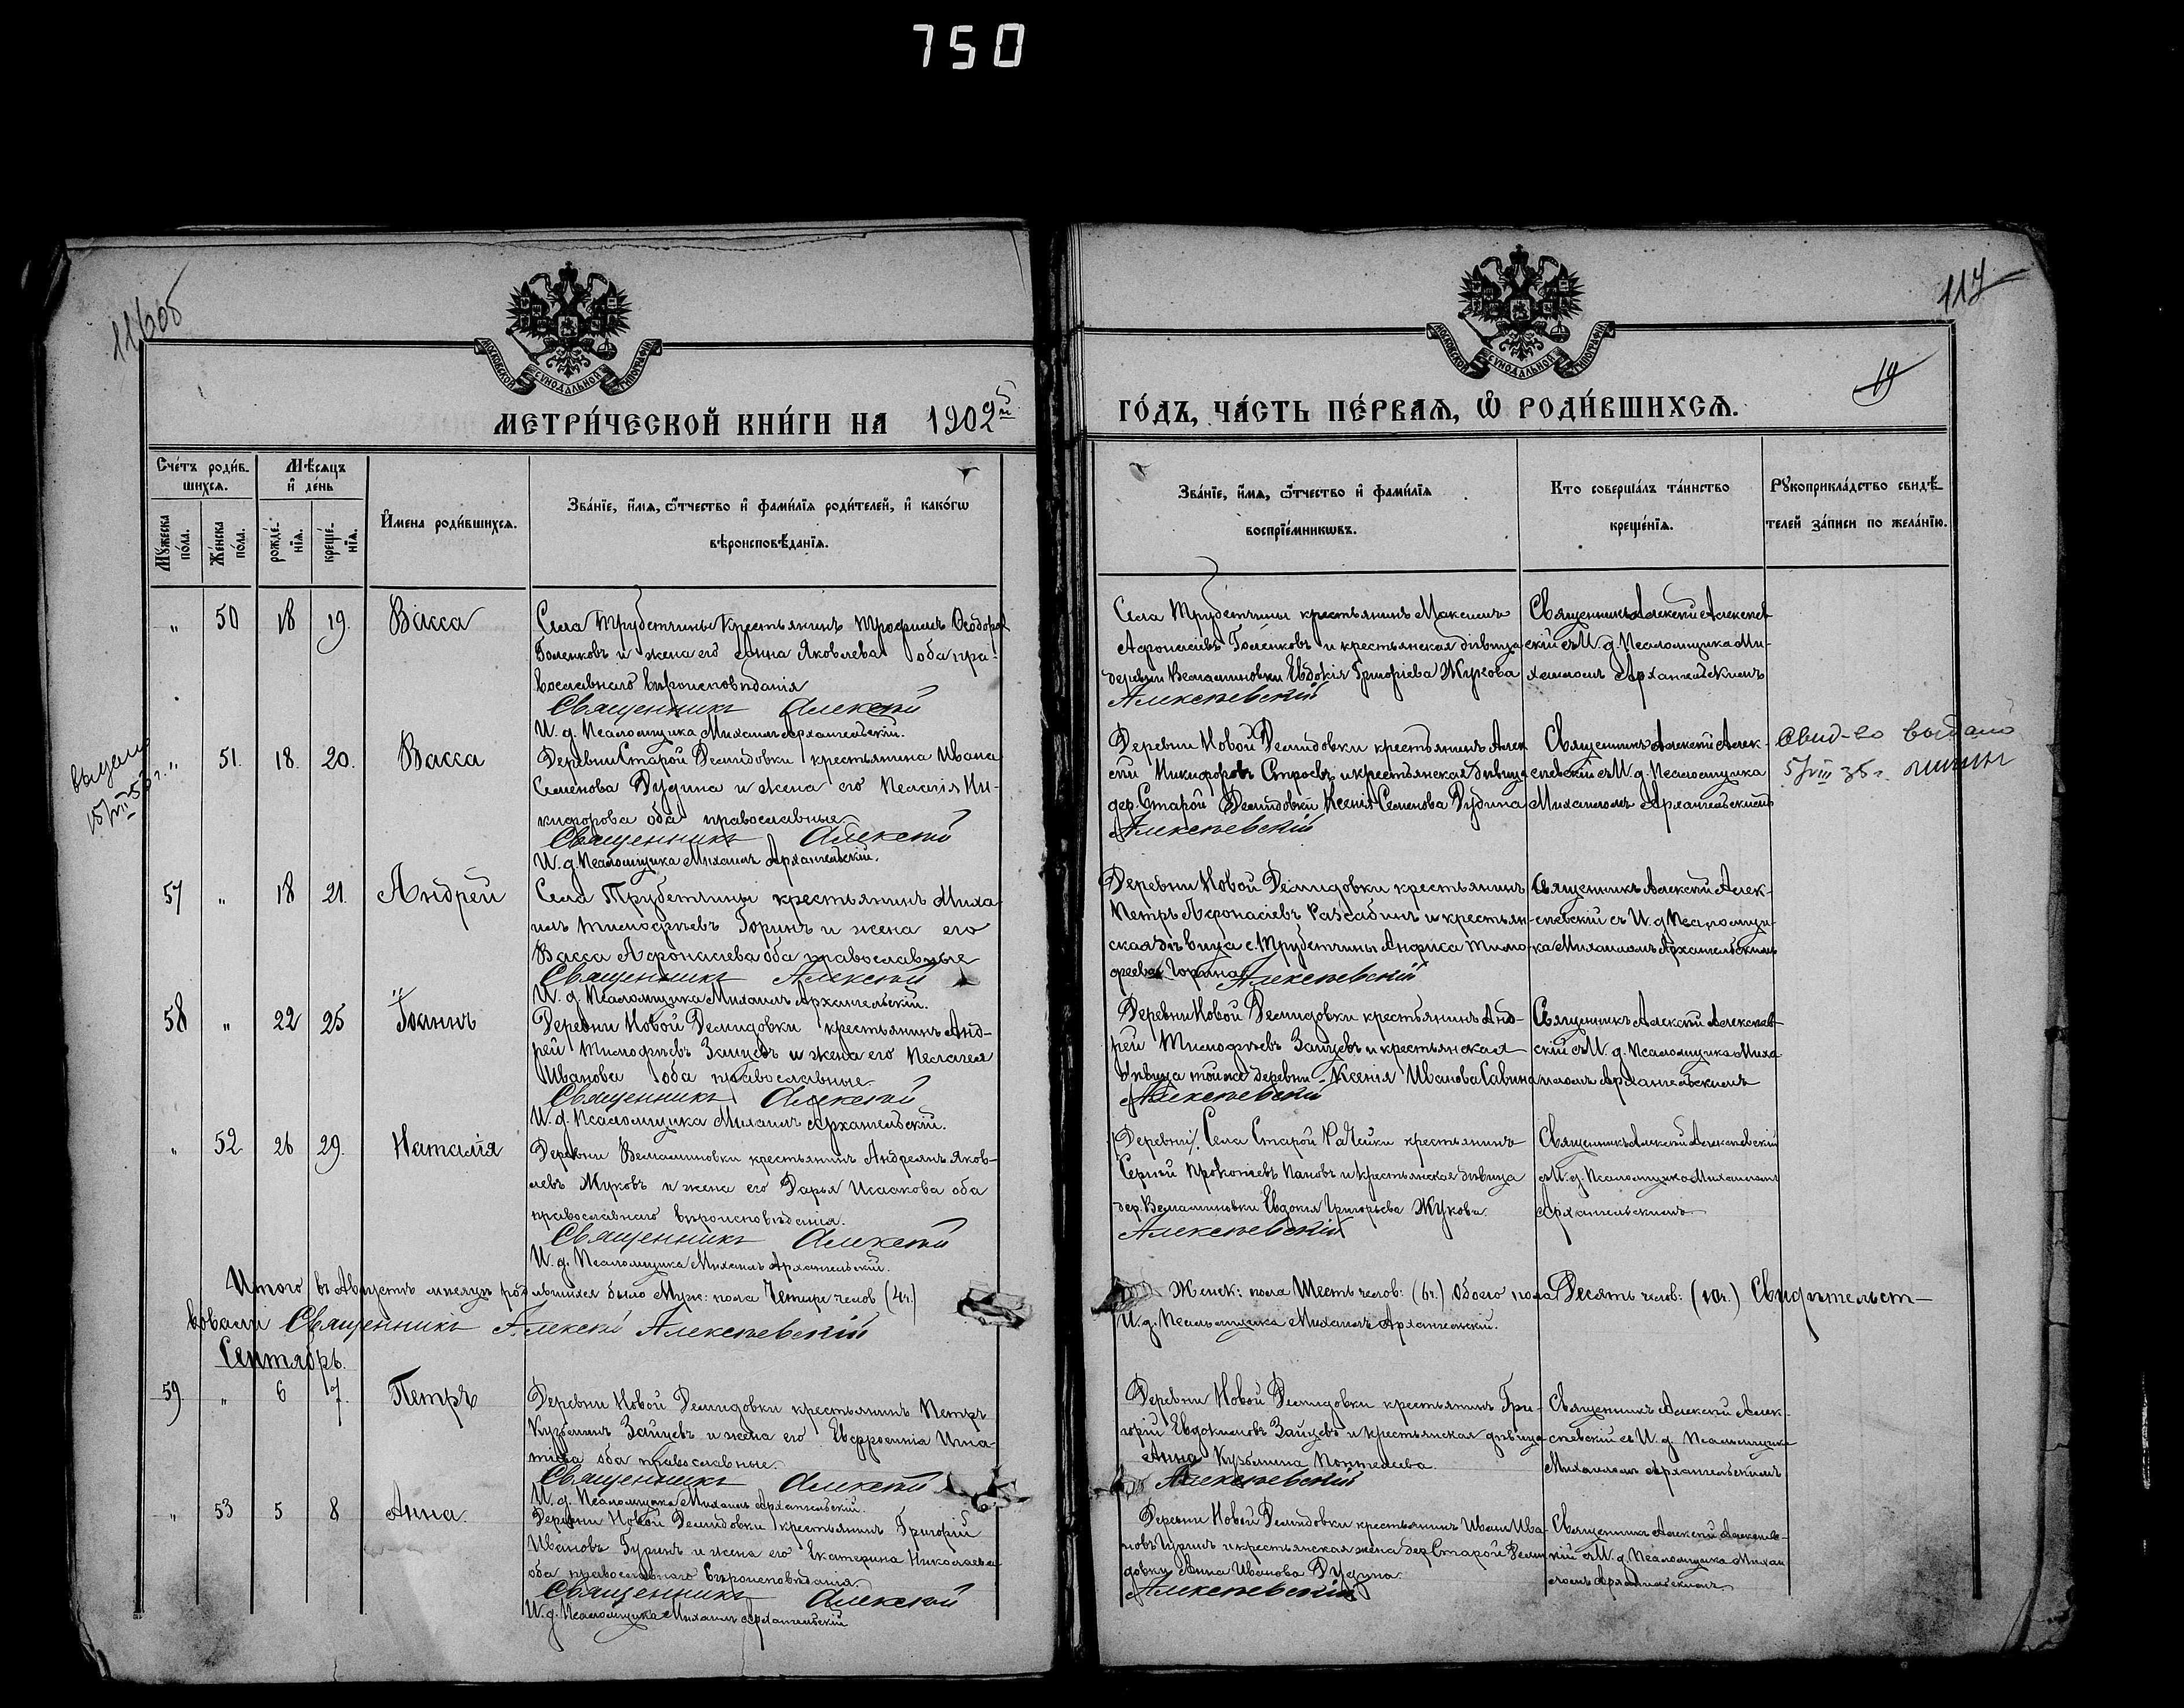 750
116об
117
19
МОСКОВСКОЙ СУНОДАЛЬНОЙ ТИПОГРАФІИ
МОСКОВСКОЙ СУНОДАЛЬНОЙ ТИПОГРАФІИ
МЕТРИ́ЧЕСКОЙ КНИ́ГИ НА 1902й
ГО́ДЪ, ЧА́СТЬ ПЕ́РВАѦ, Ѽ РОДИ́ВШИХСѦ.
Сче́тъ роди́в-
шихсѧ.
Мѣ́сѧцъ
и҆ де́нь
Мꙋ́жеска
по́ла.
Же́нска
по́ла.
рожде́-
нїѧ.
креще́-
нїѧ.
И҆мена роди́вшихсѧ.
Зва́нїе, и҆́мѧ, ѻ҆́тчество и҆ фами́лїѧ роди́телей, и҆ како́гѡ
вѣроисповѣ́данїѧ.
Зва́нїе, и҆́мѧ, ѻ҆́тчество и҆ фами́лїѧ
воспрїе́мникѡвъ.
Кто соверша́лъ та́инство
креще́нїѧ.
Рꙋкоприкла́дство свидѣ́-
телей за́писи по жела́нїю.
" 50 18 19. Васса
Села Трубетчины крестьянинъ Трофимъ Ѳеодоров
Голенковъ и жена его Анна Яковлева оба пра-
вославнаго вѣроисповѣданія
Священникъ Алексій
И. д. Псаломщика Михаилъ Архангельскій.
Села Трубетчины крестьянинъ Максимъ
Афонасіевъ Голенковъ и крестьянская дѣвица
деревни Веньяминовки Евдокія Григоріева Жукова
Алексѣевскій
Священникъ Алексій Алексѣев
скій съ И. д. Псаломщика Ми-
хаиломъ Архангельскимъ
выдано
" 51. 18. 20. Васса
Деревни Старой Демидовки крестьянина Ивана
Семенова Дудина и жена его Пелагія Ни-
кифорова оба православные.
Священникъ Алексій
И. д. Псаломщика Михаилъ Архангельскій.
Деревни Новой Демидовки крестьянинъ Алек
сій Никифоровъ Строевъ и крестьянская дѣвица
дер. Старой Демидовки Ксенія Семенова Дудина
Алексѣевскій
Священникъ Алексій Алек-
сѣевскій съ И. д. Псаломщика
Михаиломъ Архангельскимъ
Свид-во выдано
5/VIII 35 г.
57 " 18 21. Андрей
Села Трубетчины крестьянинъ Миха-
илъ Тимофѣевъ Горинъ и жена его
Васса Афонасіева оба православные
Священникъ Алексій
И. д. Псаломщика Михаилъ Архангельскій.
Деревни Новой Демидовки крестьянинъ
Петръ Афонасіевъ и крестьян-
ская дѣвица с. Трубетчины Анфиса Тимо
феева Горина Алексѣевскій
Священникъ Алексій Алек-
сѣевскій съ И. д. Псаломщи-
ка Михаиломъ Архангельскимъ
58 " 22 25 Іоаннъ
Деревни Новой Демидовки крестьянинъ Анд-
рей Тимофѣевъ Зайцевъ и жена его Пелагея
Иванова оба православные
Священникъ Алексій
И. д. Псаломщика Михаилъ Архангельскій.
Деревни Новой Демидовки крестьянинъ Анд-
рей Тимофѣевъ Зайцевъ и крестьянская
дѣвица той же деревни Ксенія Иванова Савина
Алексѣевскій
Священникъ Алексій Алексѣев
скій съ И. д. Псаломщика Миха
иломъ Архангельскимъ
" 52 26 29. Наталія
Деревни Веньяминовки крестьянинъ Андреянъ Яков-
левъ Жуковъ и жена его Дарья Исаакова оба
православнаго вѣроисповѣданія.
Священникъ Алексій
И. д. Псаломщика Михаилъ Архангельскій.
Села Старой крестьянинъ
Сергій Прокопіевъ Пановъ и крестьянская дѣвица
дер. Веньяминовки Евдокія Григорьева Жукова.
Алексѣевскій
Священникъ Алексій Алексѣевскій
съ И. д. Псаломщика Михаиломъ
Архангельскимъ
Итого въ Августѣ мѣсяцѣ родившихся было Муж: пола Четыре челов (4ч.)
Женск: пола Шесть челов: (6ч.) Обоего пола Десять челов: (10ч.) Свидѣтельст-
вовали Священникъ Алексій Алексѣевскій
И. д. Псаломщика Михаилъ Архангельскій.
Сентябрь.
59. " 6 7. Петръ
Деревни Новой Демидовки крестьянинъ Петръ
Кузьминъ Зайцевъ и жена его Евфросинія Игна-
тіева оба православные.
Священникъ Алексій
И. д. Псаломщика Михаилъ Архангельскій.
Деревни Новой Демидовки крестьянинъ Гри-
горій Евдокимовъ Зайцевъ и крестьянская дѣвица
Анна Кузьмина Понтелеева.
Алексѣевскій
Священникъ Алексій Алек-
сѣевскій съ И. д. Псаломщика
Михаиломъ Архангельскимъ
" 53 5 8 Анна.
Деревни Новой Демидовки крестьянинъ Григорій
Ивановъ Гуринъ и жена его Екатерина Николаева
оба православнаго вѣроисповѣданія.
Священникъ Алексій
И. д. Псаломщика Михаилъ Архангельскій
Деревни Новой Демидовки крестьянинъ Иванъ Ива-
новъ Гуринъ и крестьянская жена дер Старой Деми
довки Анна Иванова Дудина
Алексѣевскій
Священникъ Алексій Алексѣев-
скій съ И. д. Псаломщика Михаи
ломъ Архангельскимъ